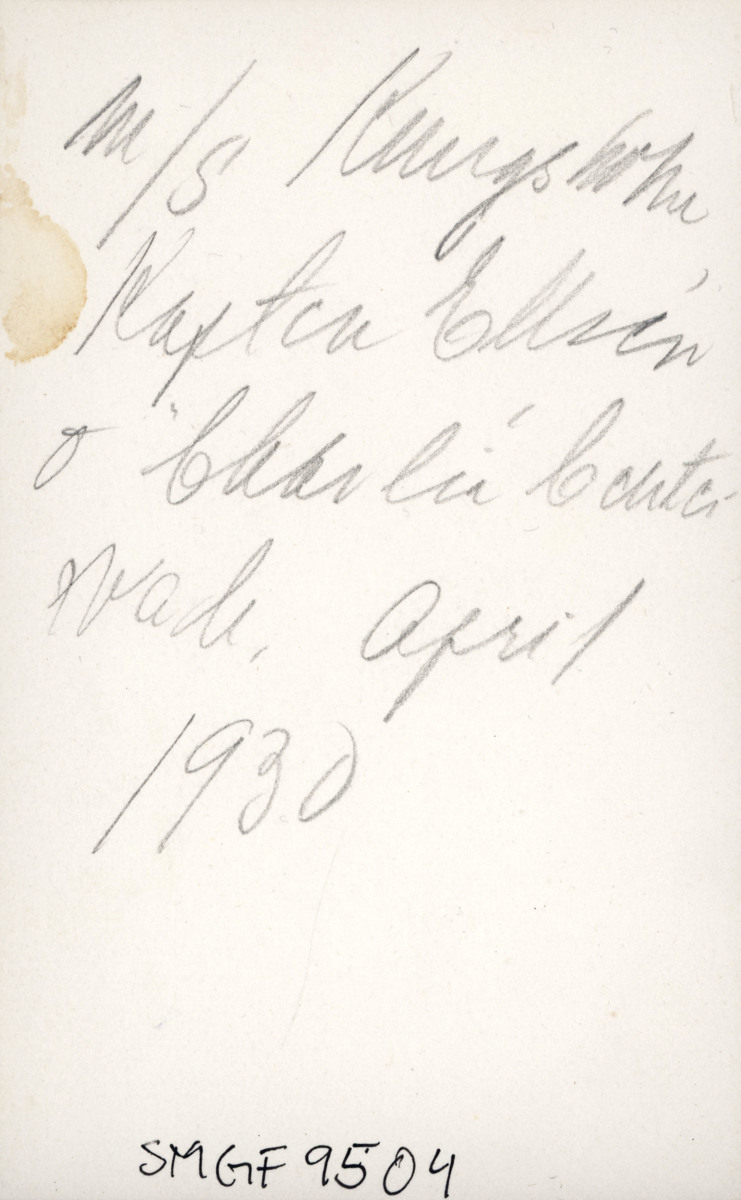 m/s Kungsholm
Kapten Ellsén
o "Charlie"
April
1930
SMGF 9504